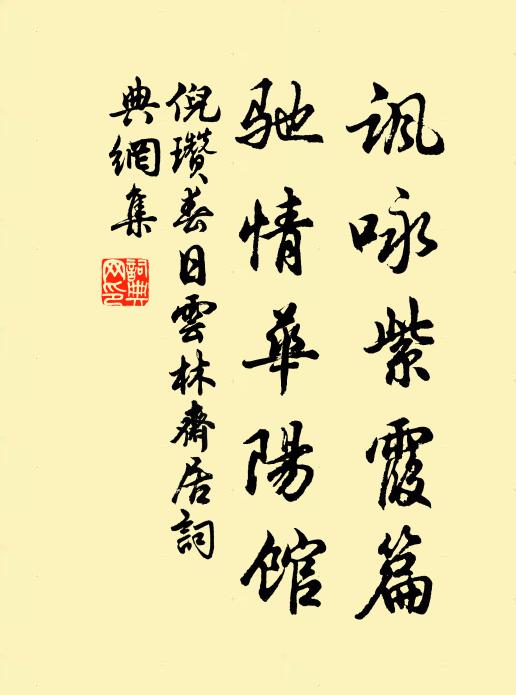 諷咏紫霞篇
馳情華陽館
倪瓚春日雲林齋居詞
典網集
詞典網印